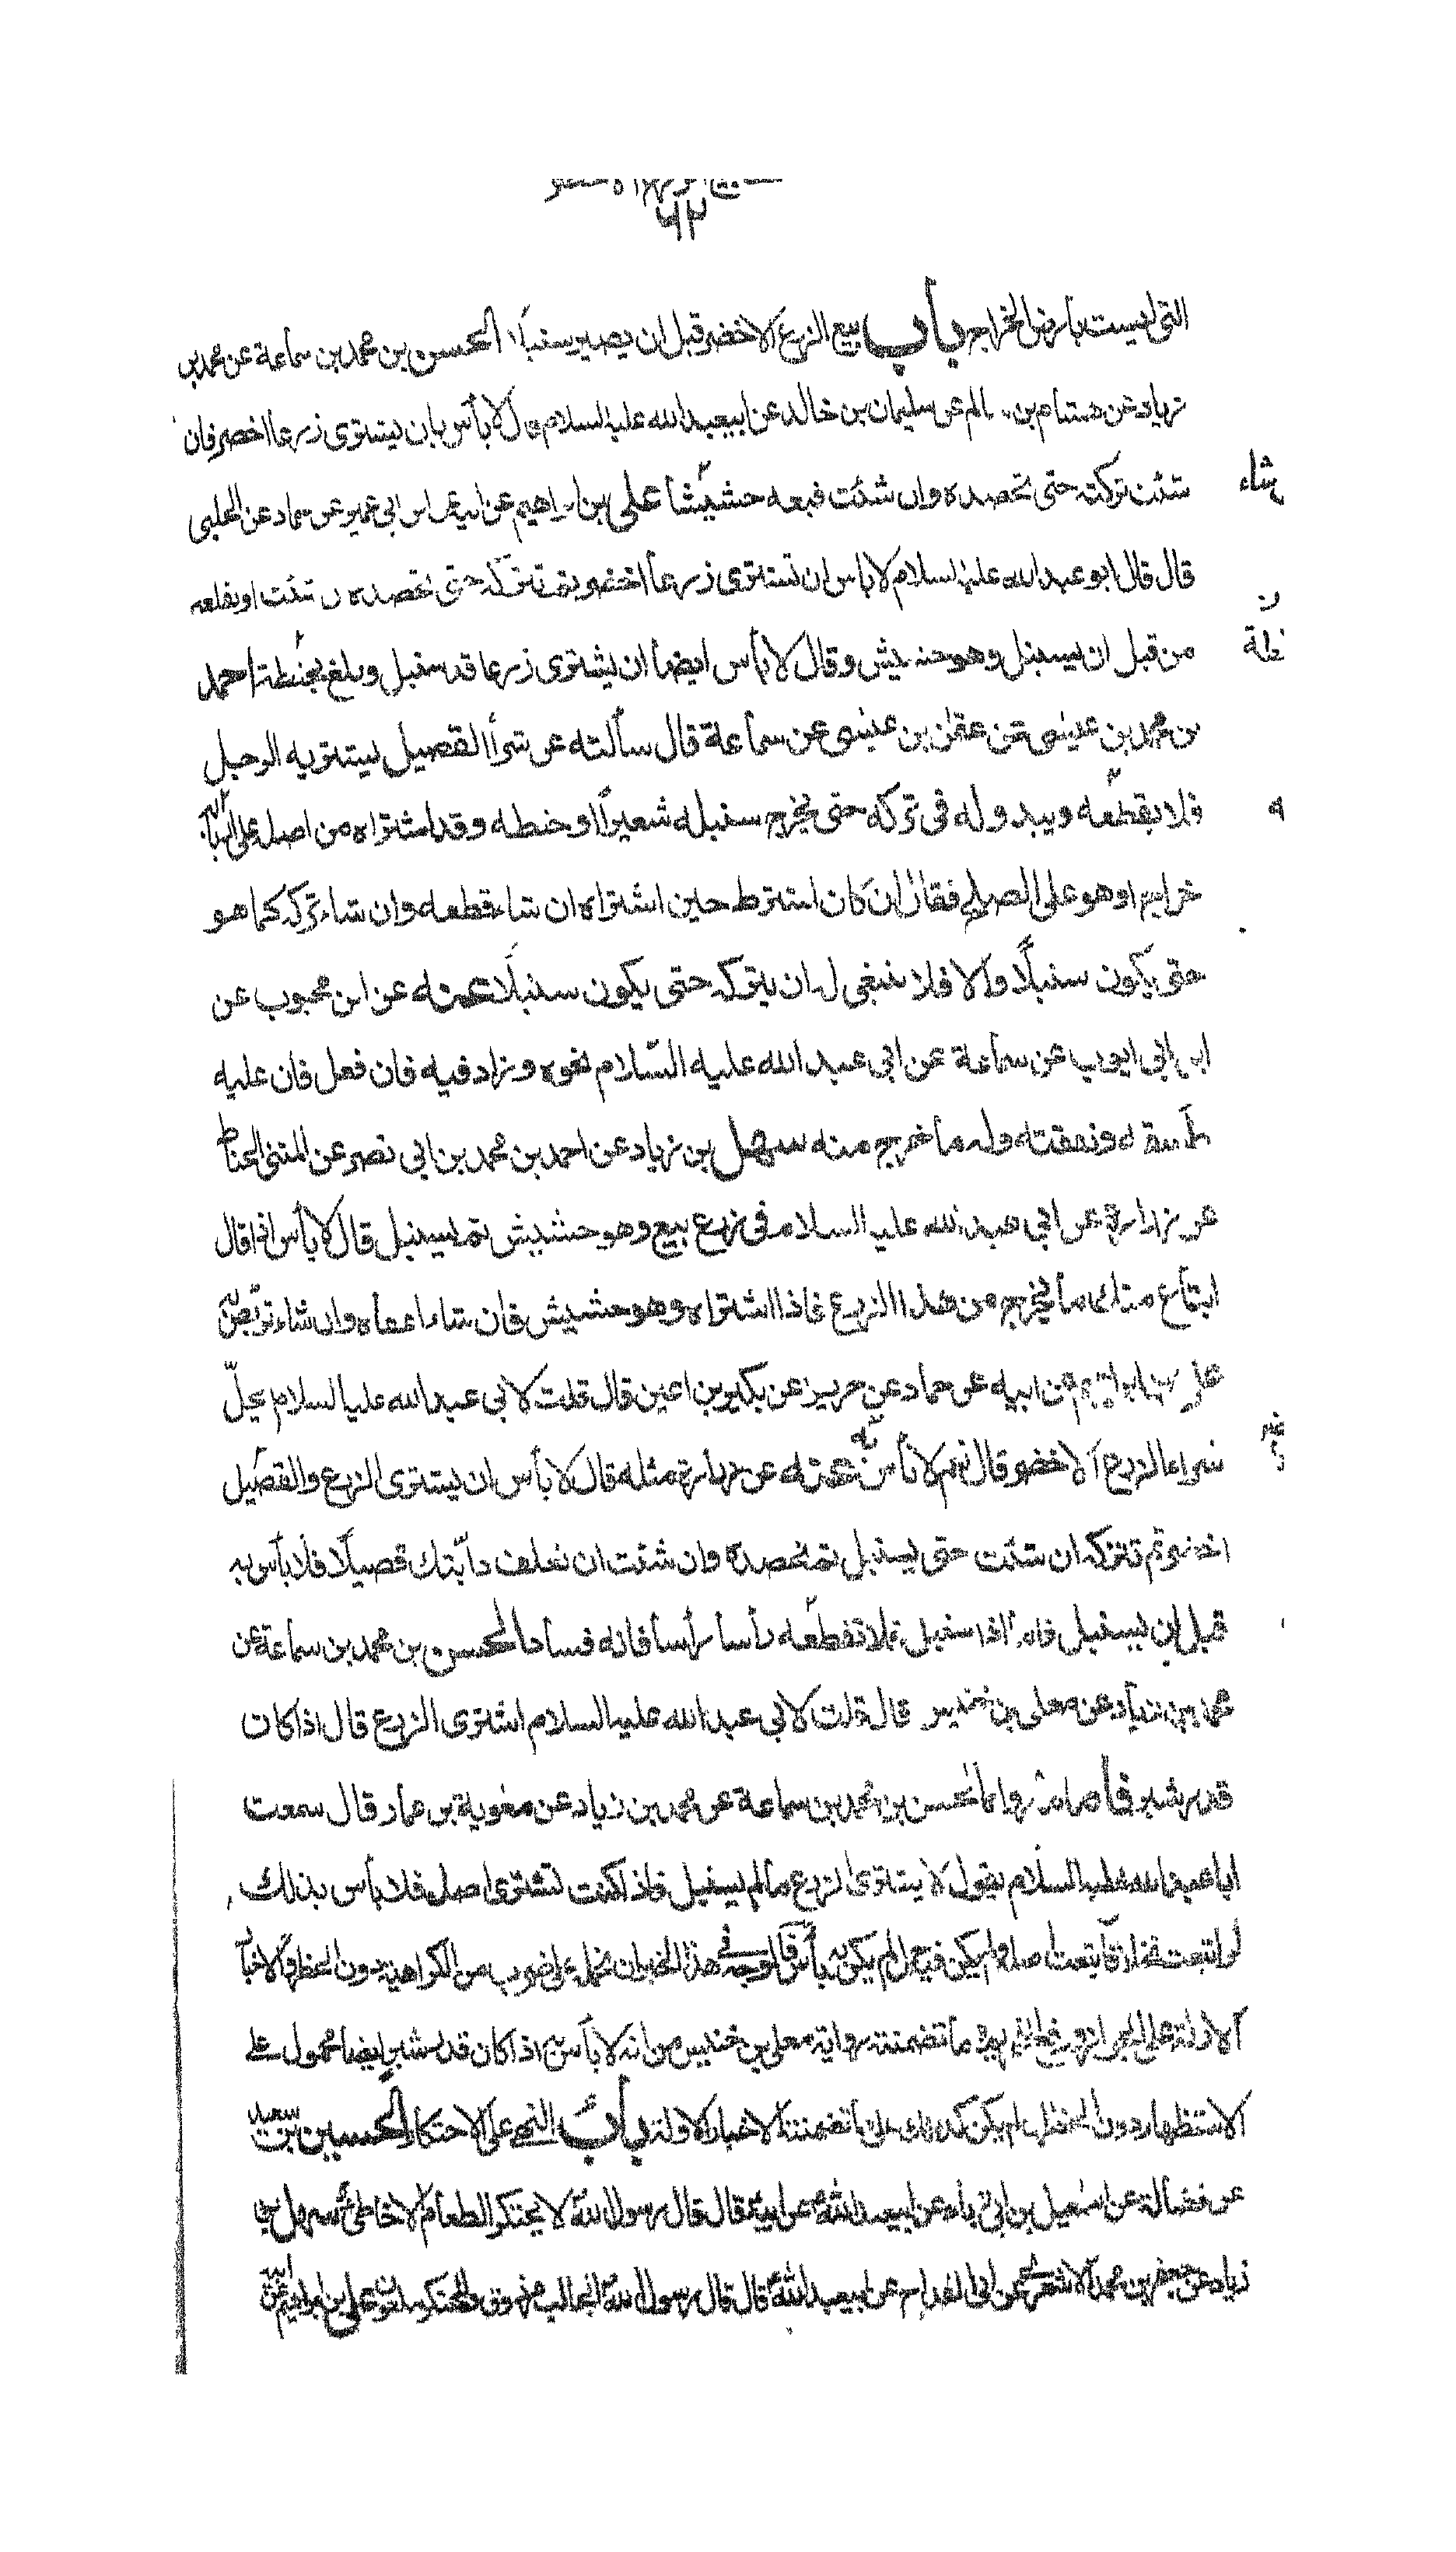 ٦٢
التى ليست بارض الخراج باب بيع الزرع الاخضر قبل ان يصير سنبلا الحسن بن محمد بن سماعة عن محمد بن
زياد عن هشام بن سالم عن سليمان بن خالد عن ابيعبد الله عليه السلام قال لا بأس بان يشترى زرعا اخضر فان
شئت تركته حتى تحصده وان شئت فبعه حشيشا على بن ابراهيم عن ابيه عن ابن ابي عمير عن حماد عن الحلبى
قال قال ابو عبد الله عليه السلام لا باس ان تشترى زرعا اخضر ثم تتركه حتى تحصده ان شئت او تقلعه
من قبل ان يسنبل وهو حشيش وقال لا بأس ايضا ان يشترى زرعا قد سنبل وبلغ بحنطة احمد
بن محمد بن عيسى عن عثمن بن عيسى عن سماعة قال سألته عن شرأ القصيل يشتريه الرجل
فلا يقطعه ويبدو له فى تركه حتى يخرج سنبله شعيرا او حنطه وقد اشتراه من اصله على اربابه
خراج او هو على العلج فقال ان كان اشترط حين اشتراه ان شاء قطعه وان شاء تركه كما هو
حتى يكون سنبلًا والا فلا ينبغى له ان يتركه حتى يكون سنبلًا عنه عن ابن محبوب عن
ابى ايوب عن سماعة عن ابى عبد الله عليه السّلام نحوه وزاد فيه فان فعل فان عليه
طسقه ونفقته وله ما خرج منه سهل بن زياد عن احمد بن محمد بن ابى نصر عن المثنى الحناط
عن زرارة عن ابي عبد الله عليه السلام فى زرع بيع وهو حشيش ثم يسنبل قال لا بأس اذا قال
ابتاع منك ما يخرج من هذا الزرع فاذا اشتراه وهو حشيش فان شاء اعفاه وان شاء تربص به
على بن ابراهيم عن ابيه عن حماد عن حريز عن بكير بن اعين قال قلت لابى عبد الله عليه السلام يحلّ
شراء الزرع الاخضر قال نعم لا بأس به عنه عن زرارة مثله قال لا بأس ان يشترى الزرع والقصيل
اخضر ثم تتركه ان شئت حتى يسنبل ثم تحصده وان شئت ان تعلف دابّتك قصيلًا فلا بأس به
قبل ان يسنبل فاما اذا سنبل فلا تقطعه رأسا رأسا فانه فساد الحسن بن محمد بن سماعة عن
محمد بن زياد عن معلى بن خنيس قال قلت لابى عبد الله عليه السلام اشترى الزرع قال اذا كان
قد رشبر فأما ما رواه الحسن بن محمد بن سماعة عن محمد بن زياد عن معوية بن عمار قال سمعت
ابا عبد الله عليه السلام يقول لا يشترى الزرع ما لم يسنبل فاذا كنت تشترى اصله فلا بأس بذلك
او ابتعت نخلا فابتعت اصله ولم يكن فيه حمل لم يكن به بأس فالوجه فى هذا الخبر ان نحمله على ضرب من الكراهية دون الحظر لان الاخبار
الاولة على الجواز ما تضمنته رواية معلى بن خنيس من انه لا بأس به اذا كان قدر شبر ايضا محمول على
الاستظهار دون الحظر ما تضمنته الاخبار الاولة باب النهى على الاحتكار الحسين بن سعيد
عن فضالة عن اسمعيل بن ابى زياد عن ابيعبد الله عن ابيه قال قال رسول الله لا يحتكر الطعام الا خاطئ سهل بن
زياد عن جعفر بن محمد الاشعرى عن ابن القداح عن ابيعبد الله قال قال رسول الله الجالب مرزوق والمحتكر ملعون على بن ابراهيم عن ابيه